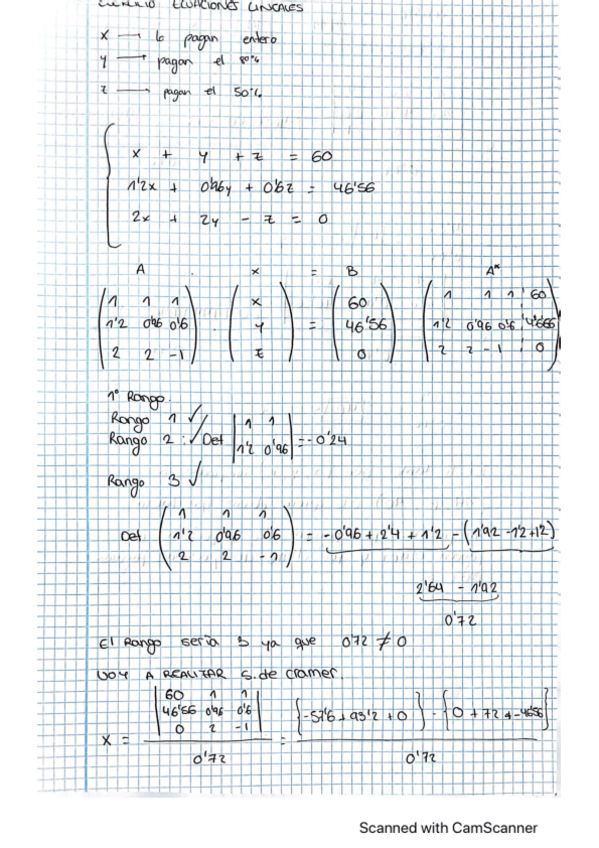 ECUACIONES LINEALES
x → lo pagan entero
y → pagan el 80%
z → pagan el 50%
x + y + z = 60
1'2x + 0'96y + 0'6z = 46'56
2x + 2y - z = 0
A . x = B A*
1 1 1 x 60 1 1 1 60
1'2 0'96 0'6 . y = 46'56 1'2 0'96 0'6
2 2 -1 z 0 2 2 -1 0
1º Rango.
Rango 1 ✓
Rango 2 : ✓ Det | 1 1 |
| 1'2 0'96 | = -0'24
Rango 3 ✓
1 1 1
Det 1'2 0'96 0'6 = -0'96 + 2'4 + 1'2 - (1'92 - 1'2 + 1'2)
2 2 -1
2'64 - 1'92
0'72
El Rango sería 3 ya que 0'72 ≠ 0
VOY A REALIZAR S. de cramer.
60 1 1
46'56 0'96 0'6
0 2 -1
x = = {-57'6 + 93'2 + 0} - {0 + 72 + -46'56}
0'72 0'72
Scanned with CamScanner